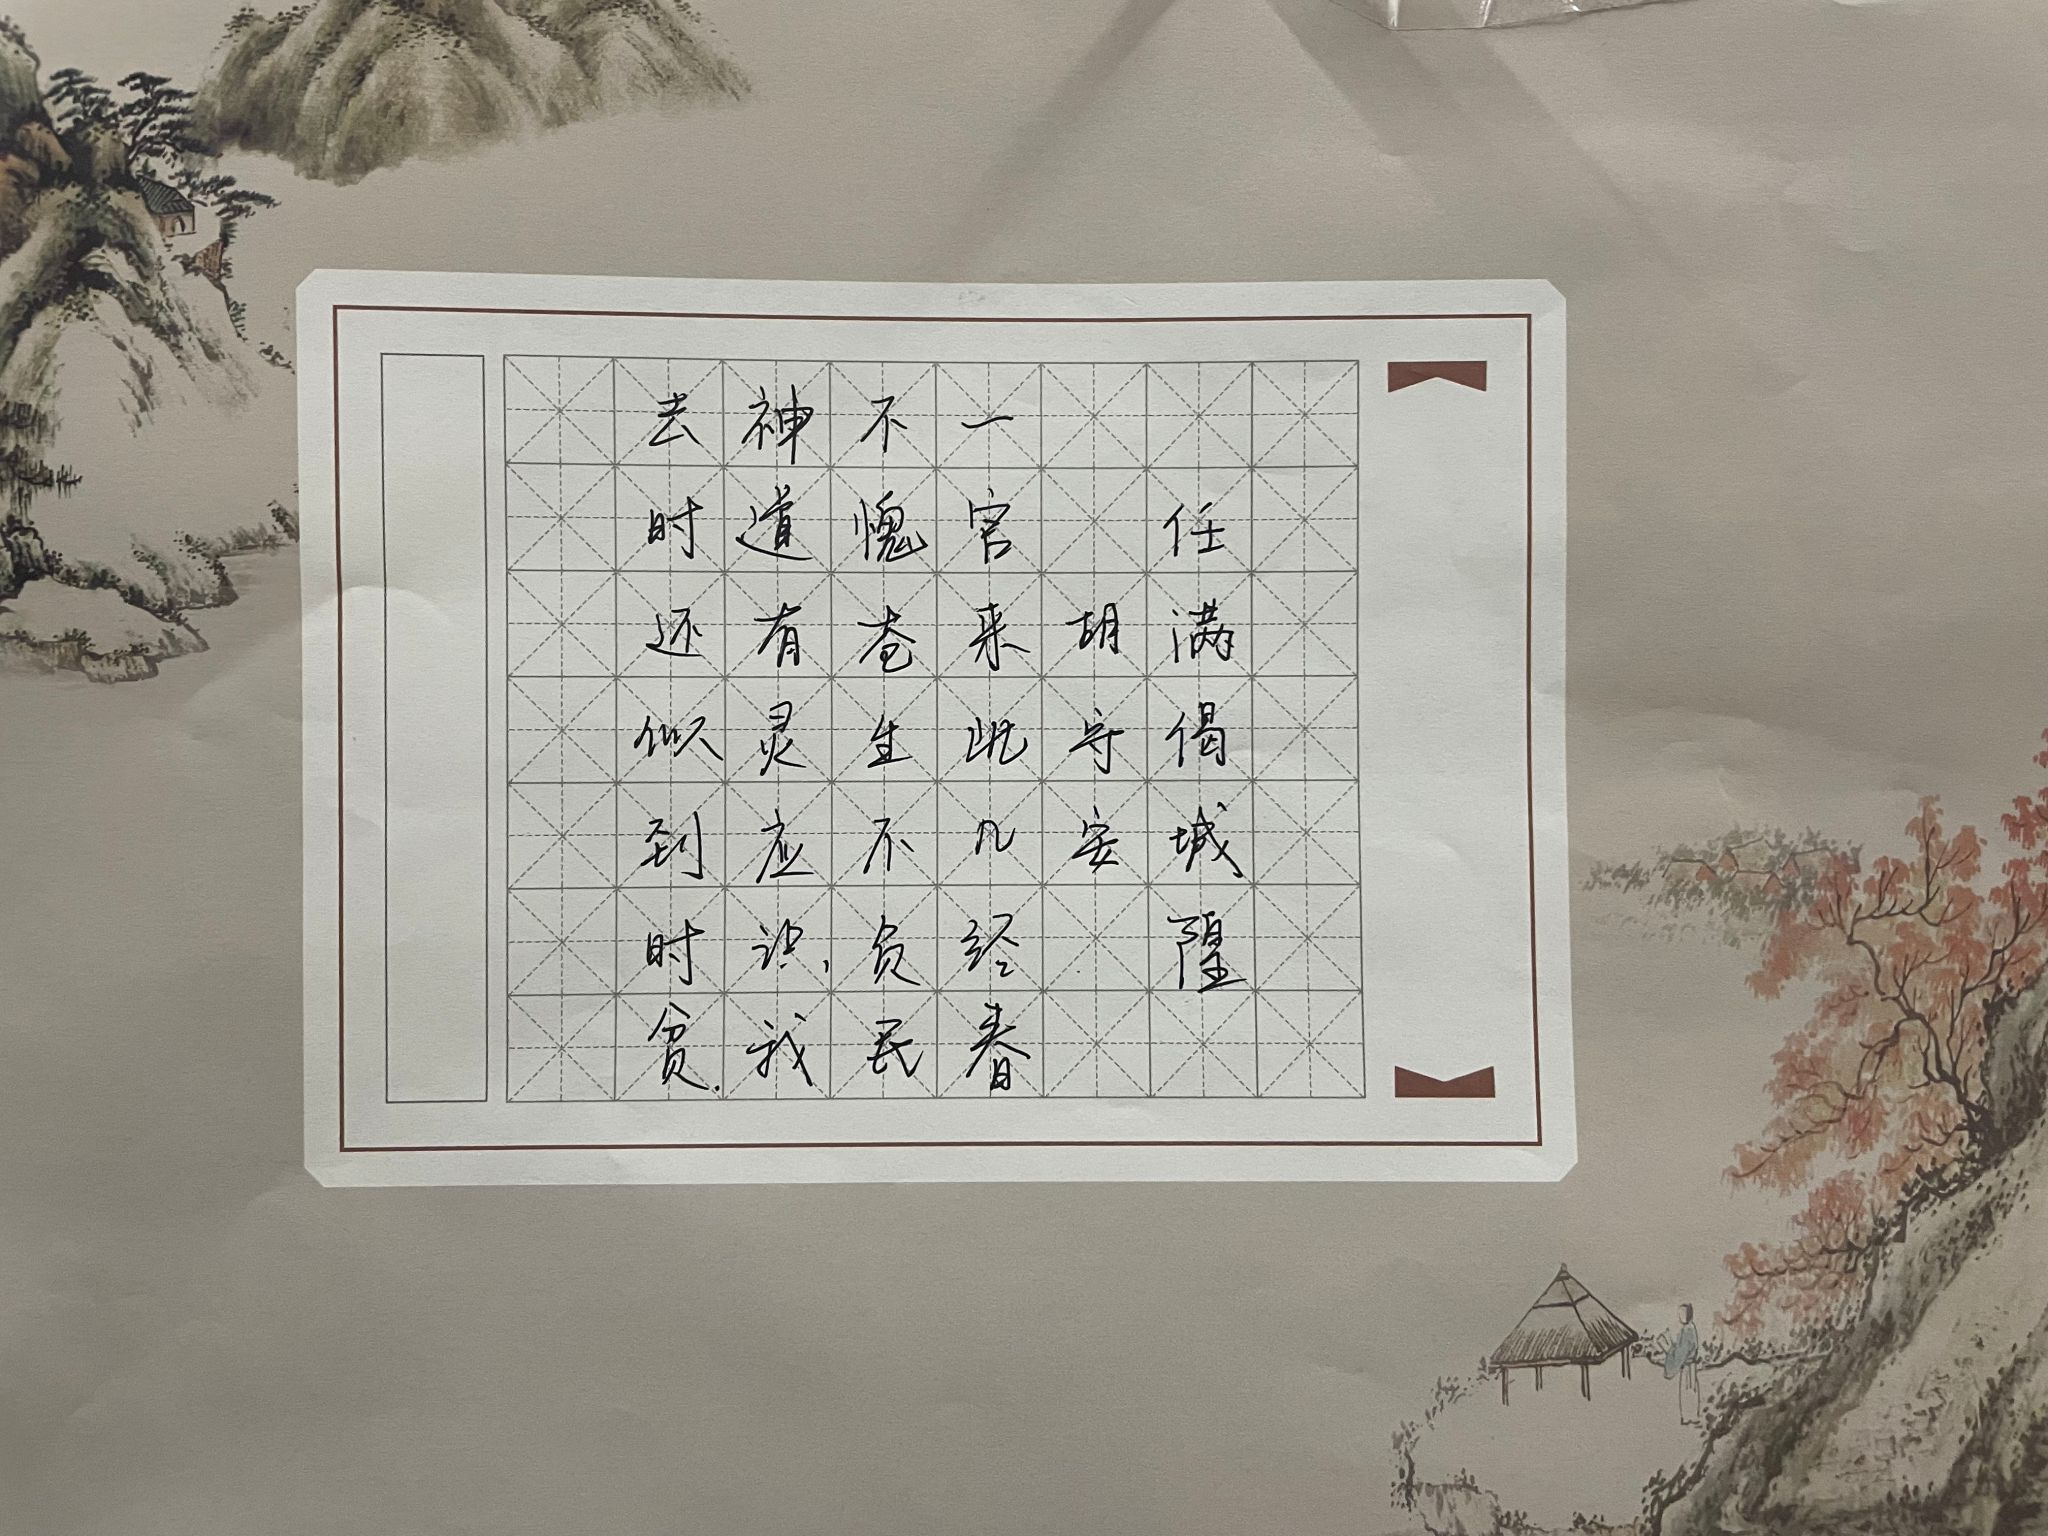 任满偈城隍
胡守安
一官来此几经春
不愧苍生不负民
神道有灵应识我
去时还似到时贫